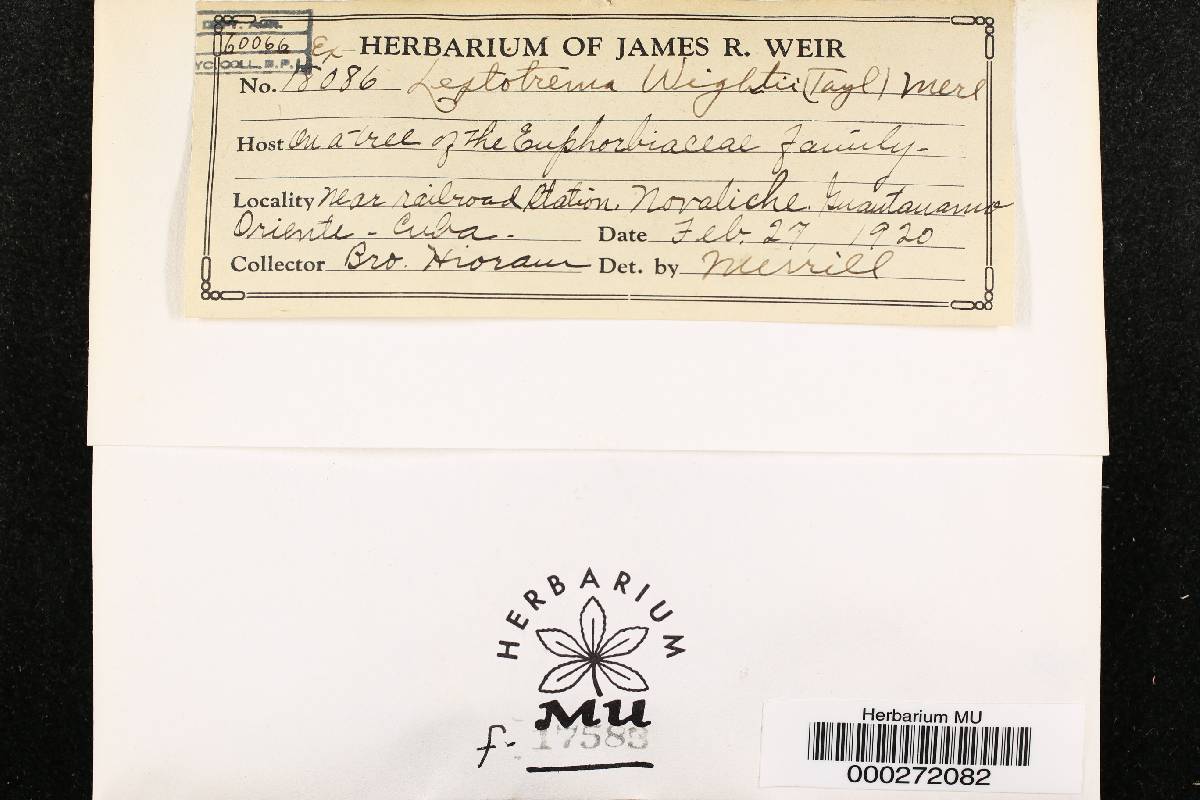 DEPT. AGR.
60066
MYC. COLL. B.P.I.
Ex HERBARIUM OF JAMES R. WEIR
No. 18086 Leptotrema Wightii (Tayl) Merl
Host On a tree of the Euphorbiaceae family-
Locality Near railroad Station. Novaliche. Guantanamo
Oriente - Cuba - Date Feb. 27, 1920
Collector Bro. Hioram Det. by Merrill
HERBARIUM
MU
f. 17583
Herbarium MU
000272082